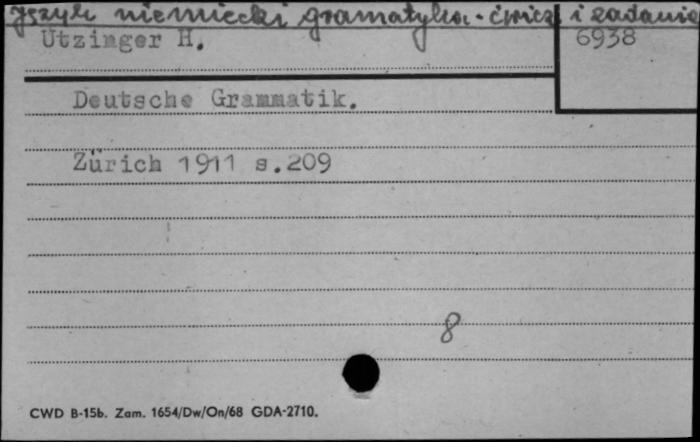 język niemiecki gramatyka - ćwicz i zadania
Utzinger H. 6938
Deutsche Grammatik.
Zürich 1911 s.209
8
CWD B-15b. Zam. 1654/Dw/On/68 GDA-2710.